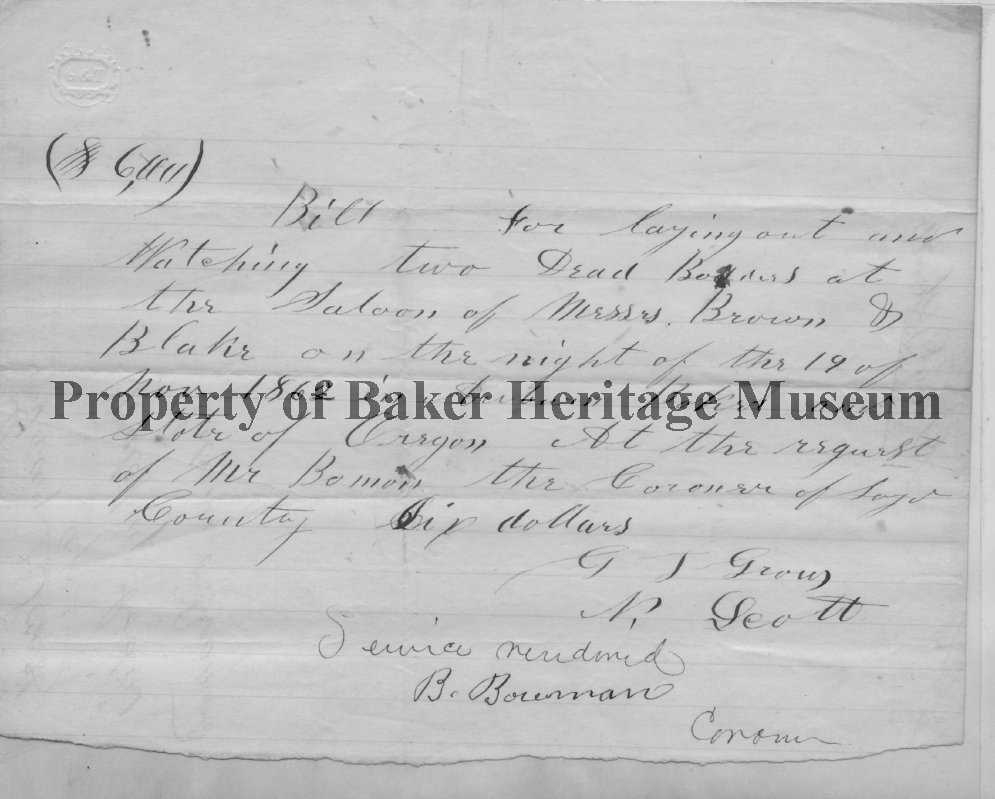 G&T
($ 6,00)
Bill For laying out and
Watching two Dead Bodies at
the Saloon of Messrs. Brown &
Blake on the night of the 19 of
Nov 1862 in
Property of Baker Heritage Museum
State of Oregon At the request
of Mr Bomon the Coroner of Sayd
County Six dollars
G T
N. Scott
Service rendered
B. Bowman
Coroner